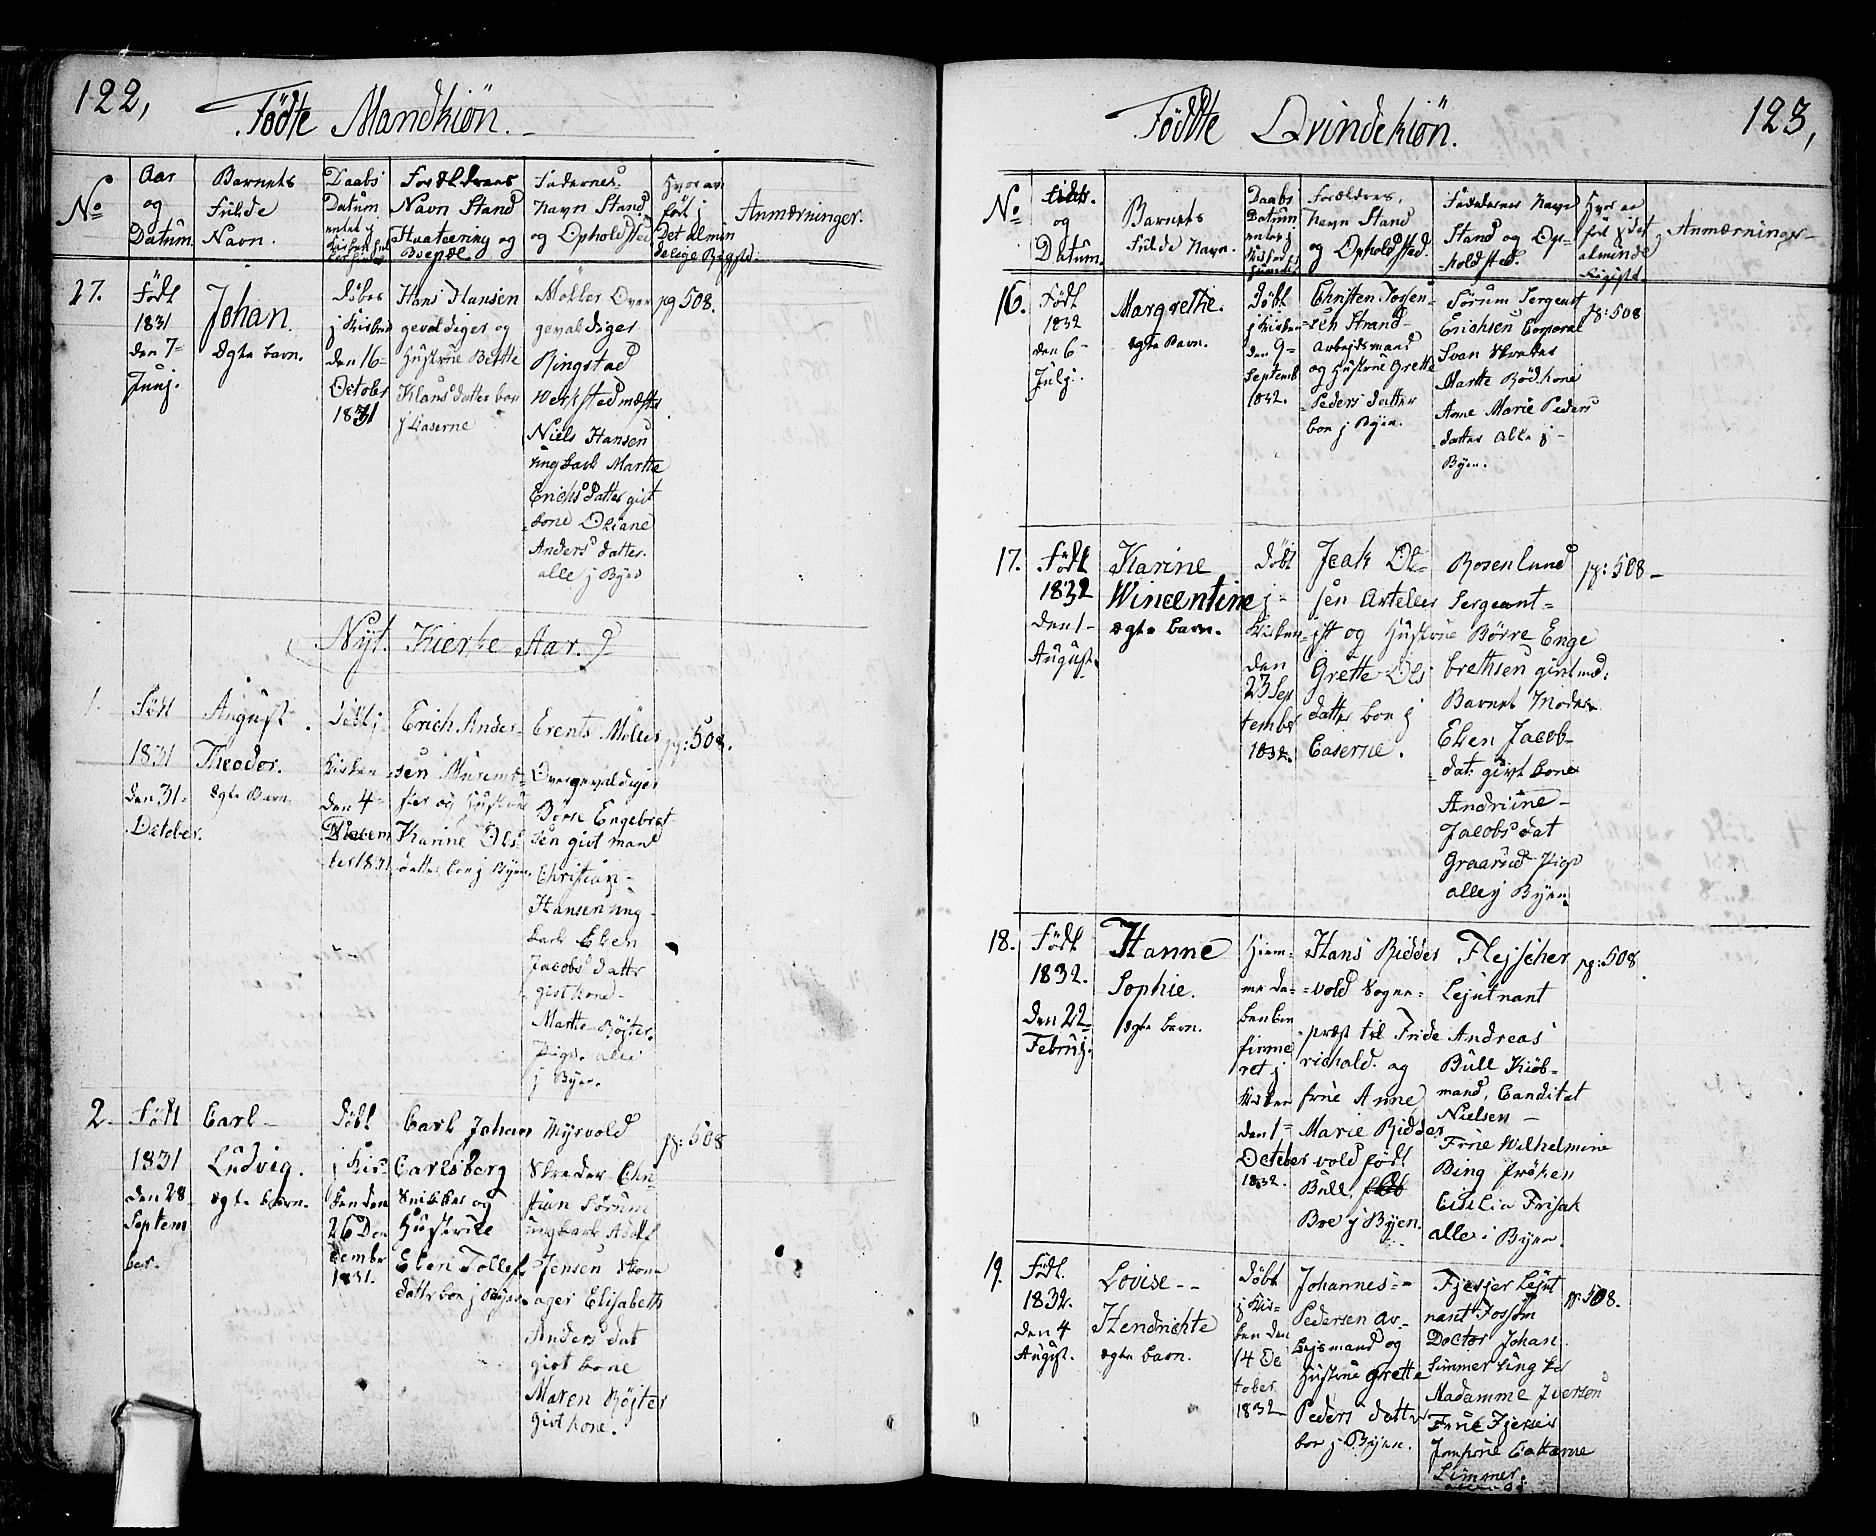 122,
Födte Mandkiön.
No
Aar
og
Datum.
Barnets
Fulde
Navn.
Daabs
Datum
Forældrenes
Navn Stand
Haatering og
Boepæl.
Fadernes
Navn Stand
og Opholdsted
Hvor er
fört j
Det almin
delige Regist:
Anmærninger.
27.
Födt
1831
den 7-
Junj.
Johan.
Ægte barn.
Döbes
j Kirken
den 16-
Octobr
1831
Hans Hansen
gevaldiger og
Hustrue Berthe
Klausdatter boe
j Caserne
Möller Over
gevaldiger
Ringstad
Verkstedmæstr
Niels Hansen
ungkarl Marthe
Erichsdatter givt
kone Oliane
Andersdatter.
alle j Byen
pg 508.
Nyt. Kierke Aar.
1.
Födt
1831
den 31-
October.
August
Theodor.
Ægte Barn.
Döbt j
Kirken
den 4-
Decem
ber 1831
Erich Ander-
sen Muremæ-
ster og Hustrue
Karine Ols
datter boe j Byen.
Erents Möller
Overgevaldiger
Börre Engebret
sen givt mand
Christian-
Hansen ung-
karl Elen
Jacobsdattr
givt kone-
Marthe Röjter.
Pige. alle
j Byen.
pg: 508.
2.
Födt
1831
den 28
Septem
ber.
Carl-
Ludvig.
Ægte barn.
Döbt
j Kir-
ken den
26 De
cembr
1831.
Carl Johan
Carlsberg
Snikker og
Hustrue
Elen Tollefs
dattr boe j Byen.
Myrvold
Skreder Chri-
stian Sörum
ungkarl Adolf
Jensen Skom-
ager Elisabeth
Andersdat
givt kone
Maren Röjter
givt kone.
pg: 508
123,
Födte Qvindekiön.
No
og
Datum.
Barnets
Fulde Navn.
Daabs
Datum
Forældres,
Navn Stand
og Opholdsted.
Faddernes Navn
Stand og Op-
holdsted.
Hvor er
fört i det
alminde
Regist.
Anmærninger-
16.
Födt
1832
den 6-
Julj.
Margrethe.
Ægte Barn.
Döbt
j Kirken
den 9-
Septemb
1832.
Christen Torsen-
Strand-
Arbejdsmand
og Hustrue Grette
Pedersdatter
boe j Byen.
Sörum Sergeant
Erichsen Corporal
Svan Skreder
Marthe Rödkone
Anne Marie Peders
datter alle j-
Byen.
pg: 508
17.
Födt
1832
den 1-
August.
Karine
Wincentine
Ægte barn.
Döbt
j-
Kirken
den
23 Sep
tember
1832.
Jeak Ol-
sen Arteller
ist og Hustrue
Grette Ols
datter boe j
Caserne.
Rosenlund
Sergeant-
Börre Enge
brethsen givt md:
Barnets Moder
Elen Jacob-
dat: givt kone
Andrine-
Jacobsdat
Graarud Pige
alle j Byen.
pg: 508-
18.
Födt
1832.
den 22-
Februj.
Hanne
Sophie.
Ægte barn.
Hiem-
me da-
ben kon
firme
ret j
Kirken
den 1-
October
1832.
Hans Ridder
vold Sogne-
præst til Fride
richald. og
frue Anne
Marie Ridder
vold födt
Bull.
Boe j Byen.
Flejscher
Lejutnant
Andreas
Bull Kiöb-
mand, Canditat
Nielsen-
Frue Wilhelmine
Bing fröken
Cicilia Frisak
alle i Byen.
pg: 508
19.
Födt.
1832.
den 4
August.
Lovise--
Hendrichte
Ægte barn.
Döbt
j Kir-
ken den
14 Oc
tober
1832
Johannes-
Pedersen Ar-
bejsmand og
Hustrue Grette
Pedersdatter
boe j Byen.
Fjerjer Lejut
nant Fossum
Doctor Johan
Simmer ungka
Madamme Iversen
Frue Fjerjer
Jomfrue Cattarine
Simmer.
pg. 508.